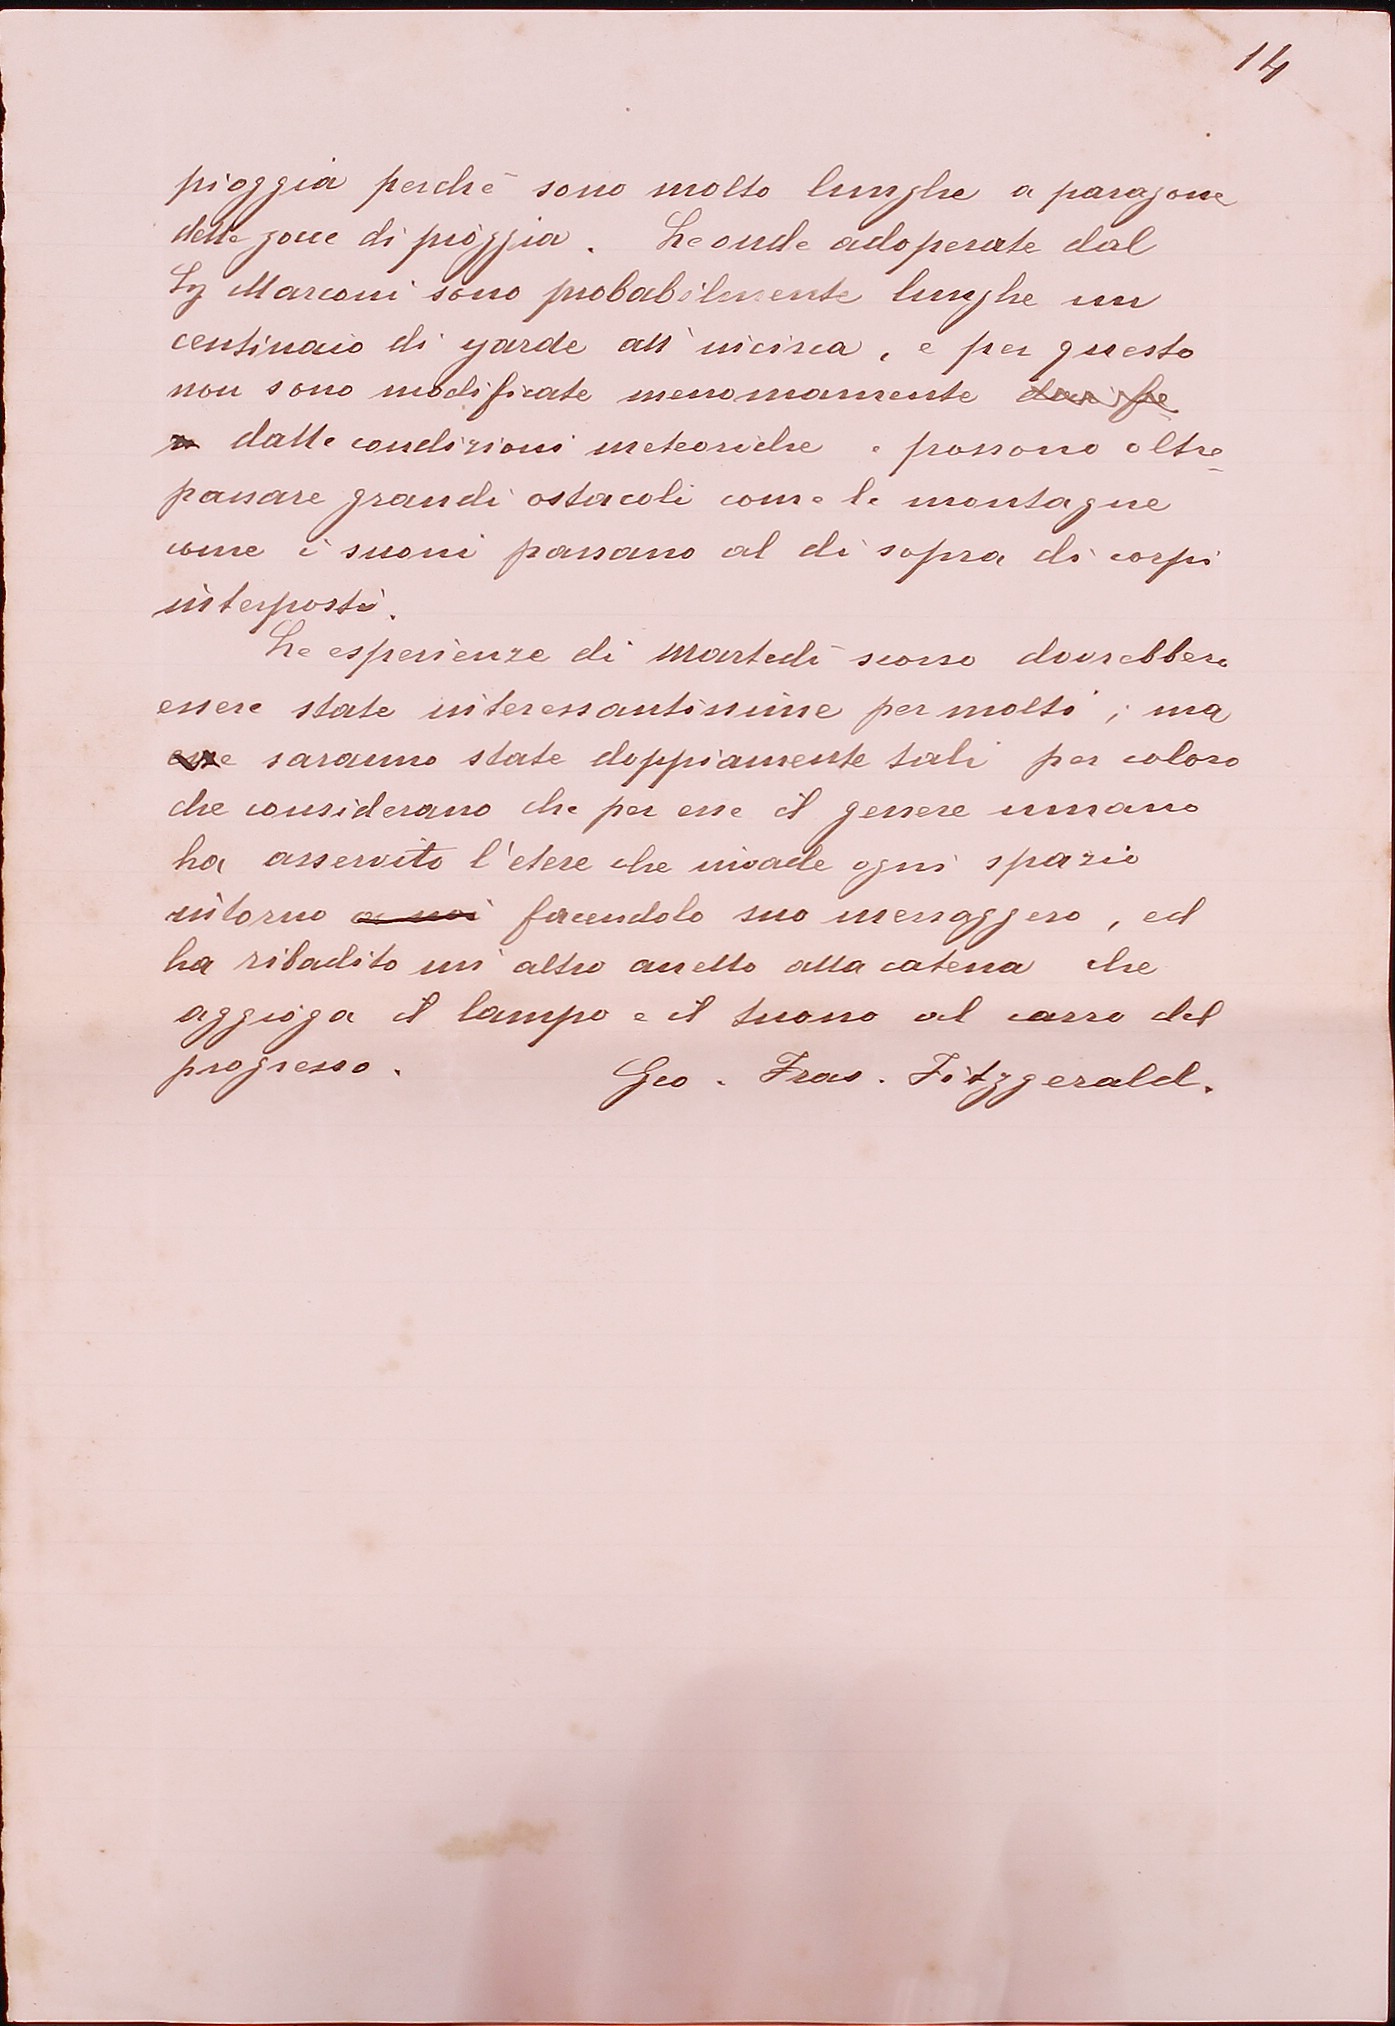 14
pioggia perchè sono molto lunghe a paragone
delle gocce di pioggia. Le onde adoperate dal
Sg Marconi sono probabilmente lunghe un
centinaio di yarde all'incirca, e per questo
non sono modificate menomamente
dalle condizioni meteoriche e possono oltre
passare grandi ostacoli come le montagne
come i suoni passano al di sopra di corpi
interposti.
Le esperienze di Martedì scorso dovrebbero
essere state interessantissime per molti; ma
esse saranno state doppiamente tali per coloro
che considerano che per esse il genere umano
ha asservito l'etere che invade ogni spazio
intorno a noi facendolo suo messaggero, ed
ha ribadito un altro anello alla catena che
aggioga il lampo e il tuono al carro del
progresso. Geo. Fras. Fitzgerald.